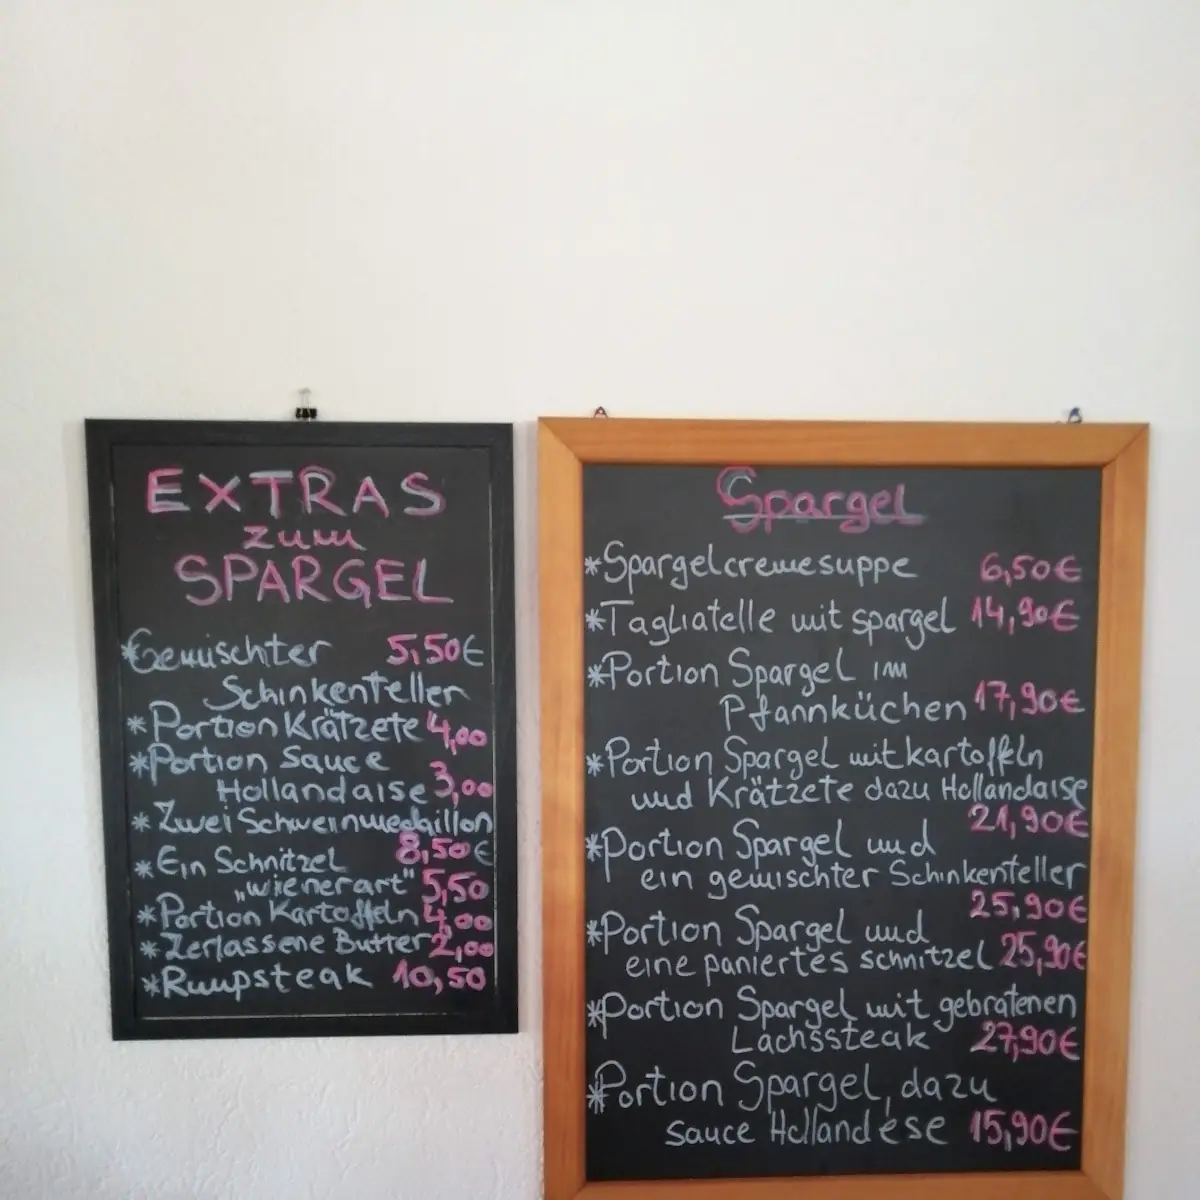 EXTRAS
zum
SPARGEL
*Gemischter 5,50€
Schinkenteller
*Portion Krätzete 4,00
*Portion Sauce
Hollandaise 3,00
*Zwei Schweinmedaillon
8,50€
*Ein Schnitzel
„wienerart" 5,50
*Portion Kartoffeln 4,00
*Zerlassene Butter 2,00
*Rumpsteak 10,50
Spargel
*Spargelcremesuppe 6,50€
*Tagliatelle mit spargel 14,90€
*Portion Spargel im
Pfannküchen 17,90€
*Portion Spargel mit kartoffeln
und Krätzete dazu Hollandaise
21,90€
*Portion Spargel und
ein gemischter Schinkenteller
25,90€
*Portion Spargel und
eine paniertes schnitzel 25,90€
*Portion Spargel mit gebratenen
Lachssteak 27,90€
*Portion Spargel, dazu
sauce Hollandése 15,90€